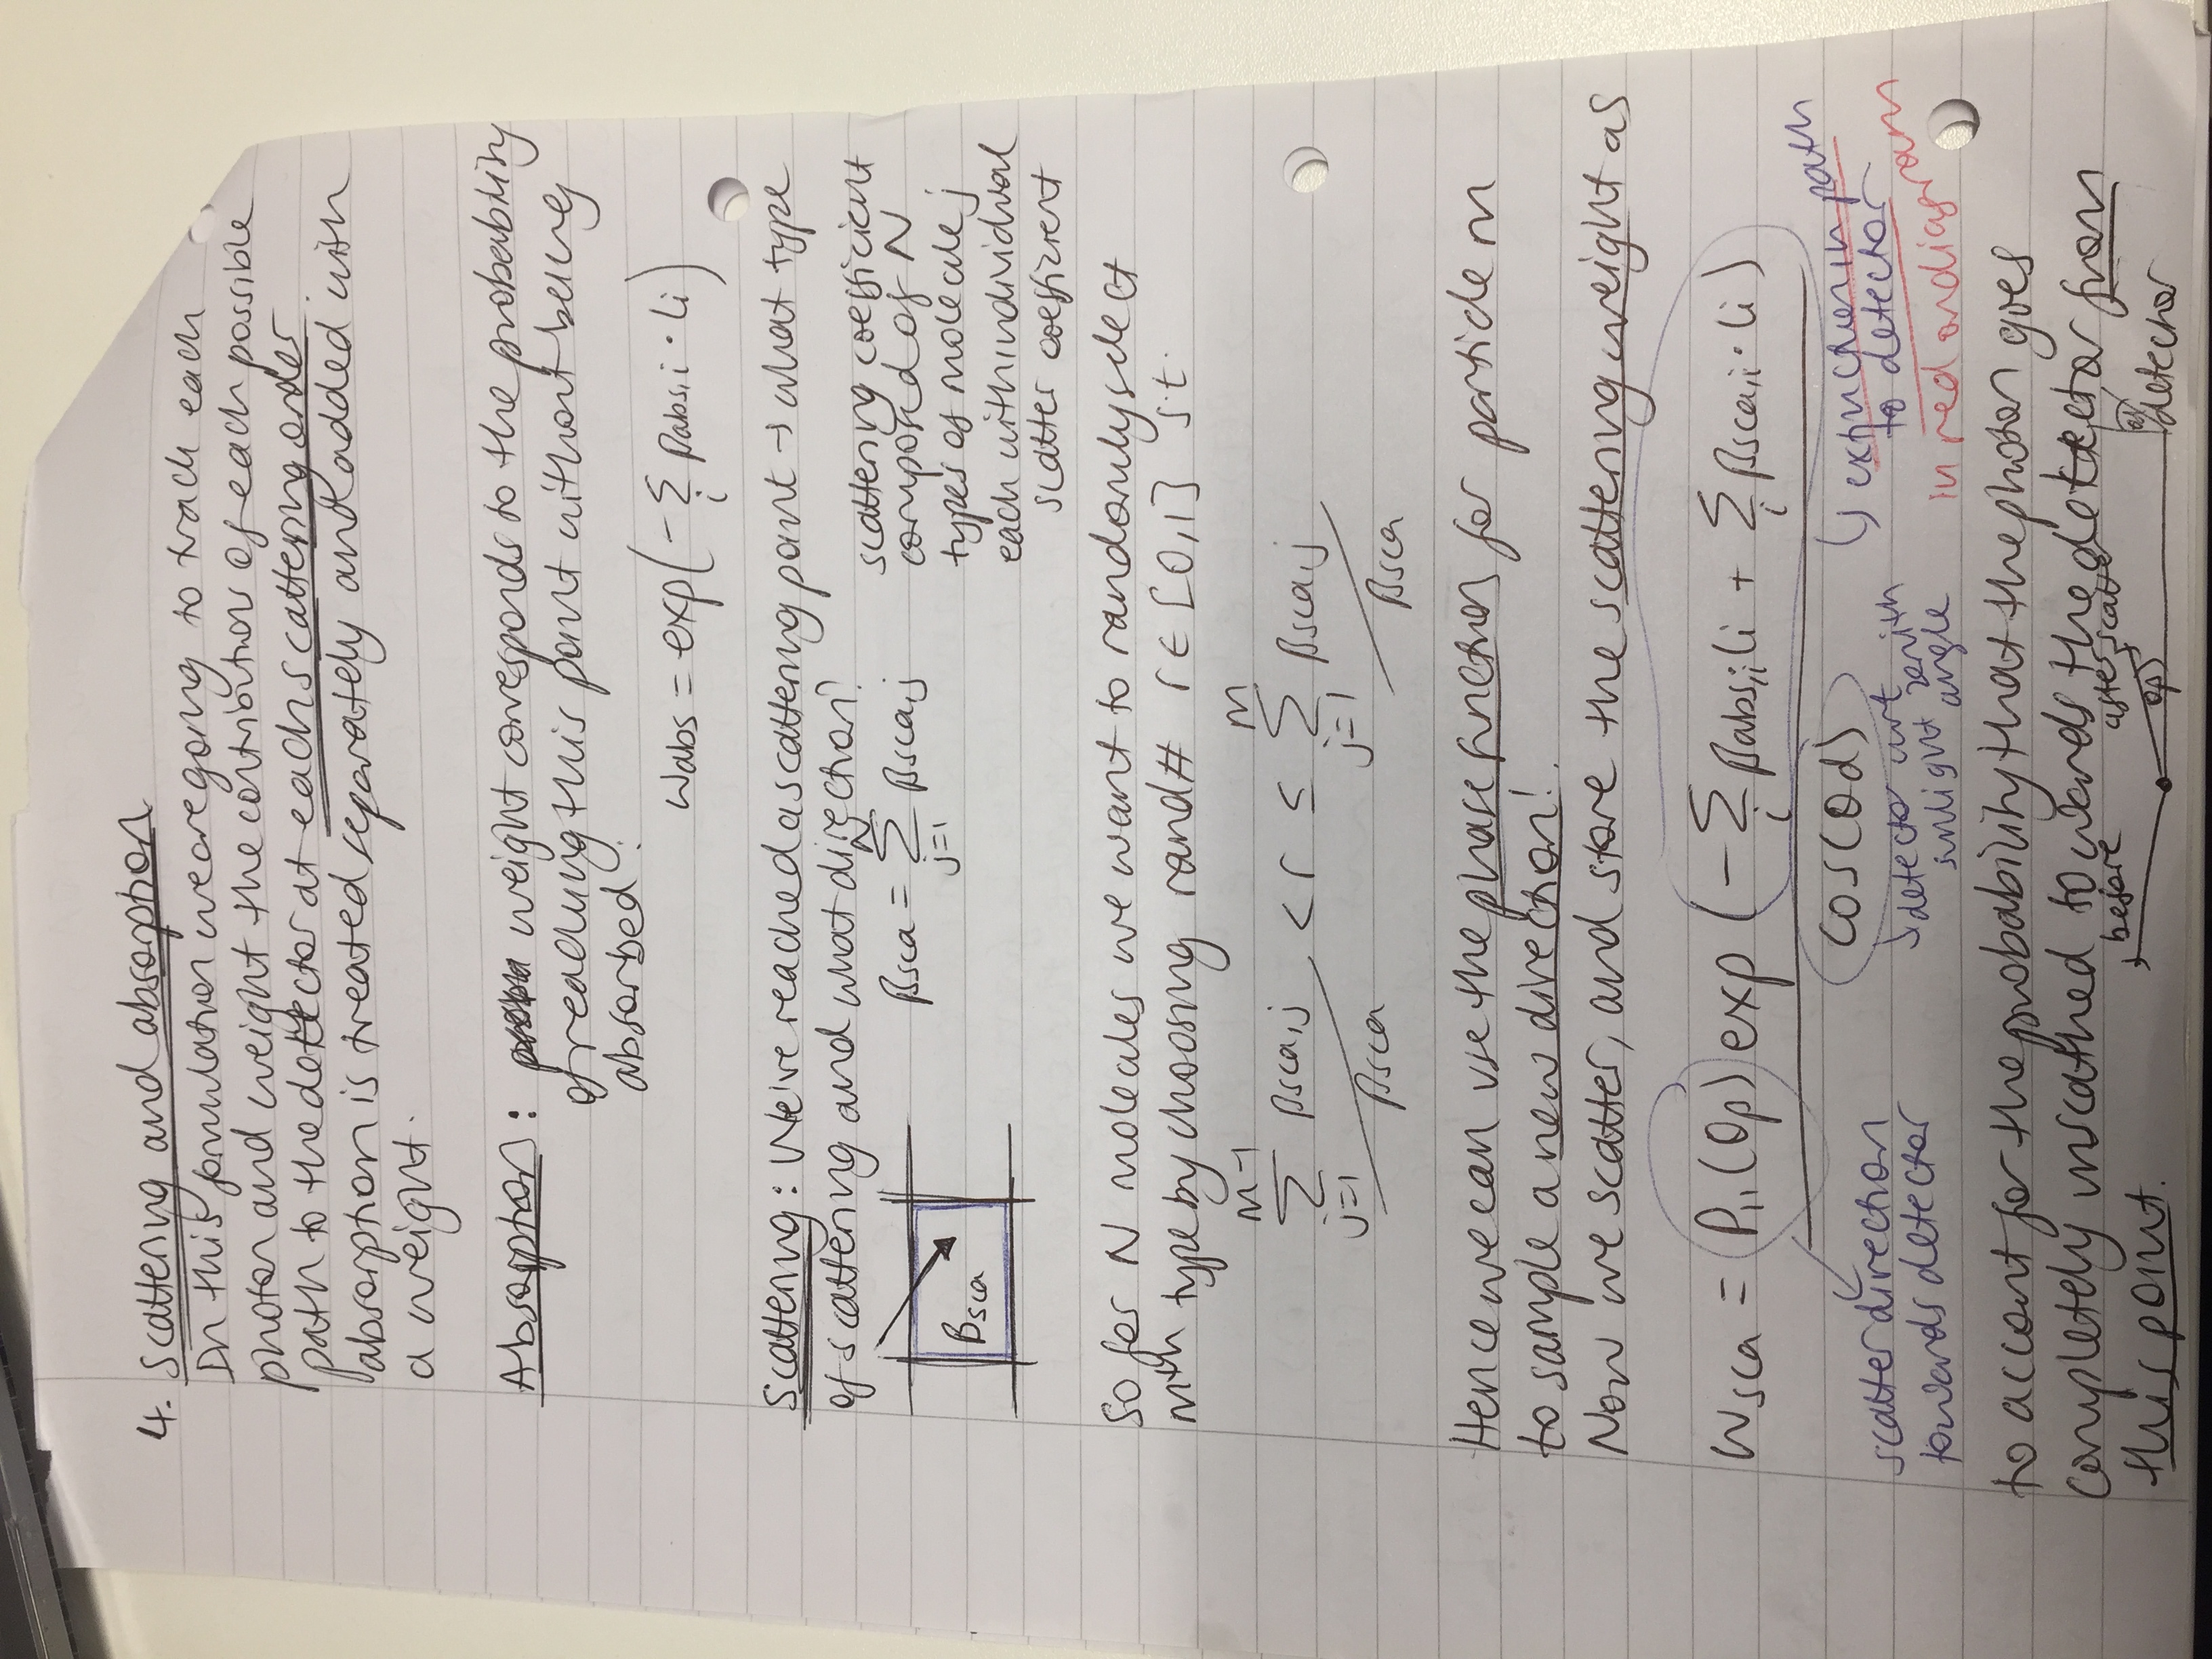 4. Scattering and absorption
In this formulation we are going to track each
photon and weight the contribution of each possible
path to the detector at each scattering order.
absorption is treated separately and added with
a weight.
Absorption: weight corresponds to the probability
of reaching this point without being
absorbed:
Wabs = exp(-Σi βabs,i · li)
Scattering: We've reached a scattering point → what type
of scattering and what direction?
βsca
βsca = Σ_{j=1}^{N} βsca,j
scattering coefficient
composed of N
types of molecule j
each with individual
scatter coefficient
So for N molecules we want to randomly select
mth type by choosing rand# r ∈ [0,1] s.t.
Σ_{j=1}^{m-1} βsca,j / βsca < r ≤ Σ_{j=1}^{m} βsca,j / βsca
Hence we can use the phase function for particle m
to sample a new direction!
Now we scatter, and store the scattering weight as
Wsca = P11(θp) exp(-Σi βabs,i li + Σi βsca,i · li) / cos(θd)
scatter direction
towards detector
↳ detector wrt
sunlight zenith
angle
↳ extinction in path
to detector
in red on diagram
to account for the probability that the photon goes
completely unscathed towards the detector from
this point.
before
after scatter
θp
θd
detector